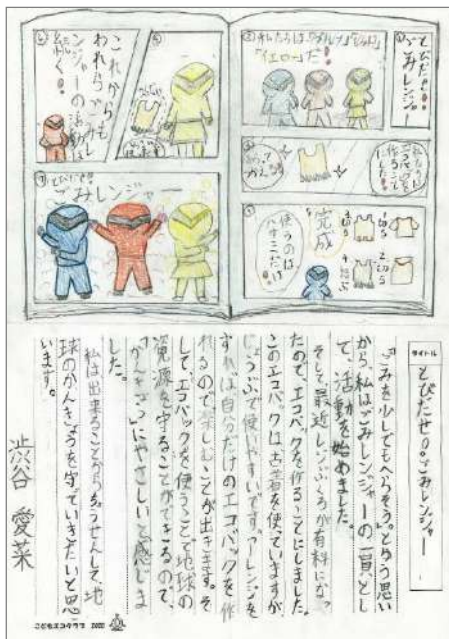 とびだせ!!
ごみレンジャー
私たちは「ブルー」「レッド」
「イエロー」だ!!
作ること
にした!!
完成
使うのは
ハサミだけ
1切る
2切る
3切る
4結ぶ
これからも
われらごみレ
ンジャーの活動は
続く…
とびだせ!!
ごみレンジャー
タイトル
とびだせ!!ごみレンジャー
「ごみを少しでもへらそう。」という思い
から、私はごみレンジャーの一員とし
て、活動を始めました。
そして、最近レジぶくろが有料になっ
たので、エコバックを作ることにしました。
このエコバックは古着を使っていますが、
じょうぶで使いやすいです。アレンジを
すれば自分だけのエコバックを作
れるので、楽しむことが出きます。そ
して、エコバックを使うことで地球の
資源を守ることができるので、
「かんきょう」にやさしいと感じま
した。
私は出来ることからちょうせんして、地
球のかんきょうを守っていきたいと思
います。
渋谷 愛菜
こどもエコクラブ 2020